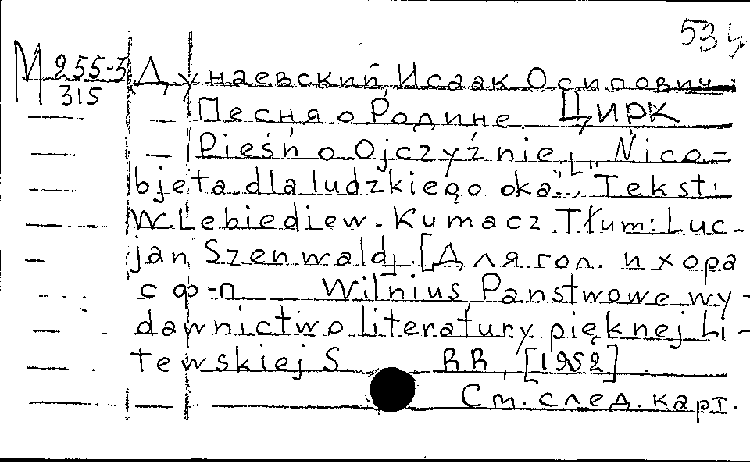 53
М 255-3 Дунаевский, Исаак Осипович.
315
Песня о Родине. ЦИРК
Pieśń o Ojczyźnie. „Nico-
bjęta dla ludzkiego oka...". Tekst:
W. Lebiediew-Kumacz. Tłum: Luc-
jan Szenwald. [Для гол. и хора
с ф-п Wilnius, Państwowe wy-
dawnictwo literatury pięknej Li-
tewskiej S RR, [1952]
См. след. карт.